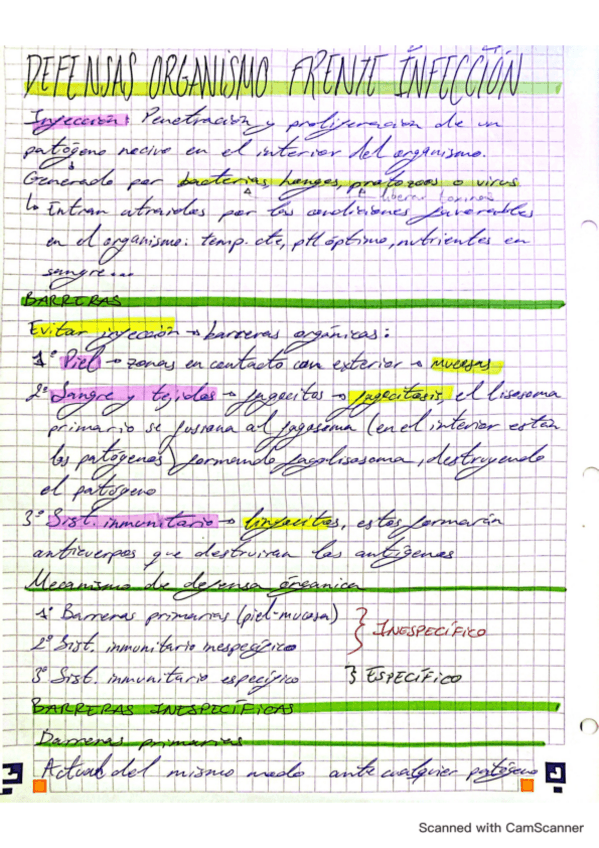 DEFENSAS ORGANISMO FRENTE INFECCIÓN
Infección: Penetración y proliferación de un
patógeno nocivo en el interior del organismo.
Generado por bacterias, hongos, protozoos o virus
liberar toxinas
↳ Entran atraidos por las condiciones favorables
en el organismo: temp. cte, pH óptimo, nutrientes en
sangre...
BARRERAS
Evitar infección → barreras orgánicas:
1º Piel → zonas en contacto con exterior → mucosas
2º Sangre y tejidos → fagocitos → fagocitosis, el lisosoma
primario se fusiona al fagosoma (en el interior están
los patógenos) formando fagolisosoma, destruyendo
el patógeno
3º Sist. inmunitario → linfocitos, estos formarán
anticuerpos que destruiran los antígenos
Mecanismo de defensa órganica
1º Barreras primarias (piel-mucosa)
2º Sist. inmunitario inespecífico } INESPECÍFICO
3º Sist. inmunitario específico } ESPECÍFICO
BARRERAS INESPECÍFICAS
Barreras primarias
Actual del mismo modo ante cualquier patógeno
Scanned with CamScanner